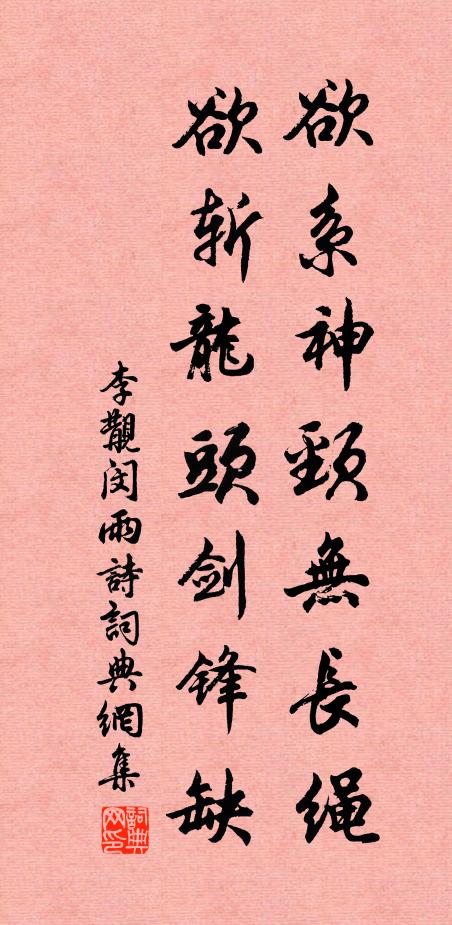 欲系神頸無長绳
欲斩龍頭剑锋缺
李覯閔雨詩詞典網集
詞典網印